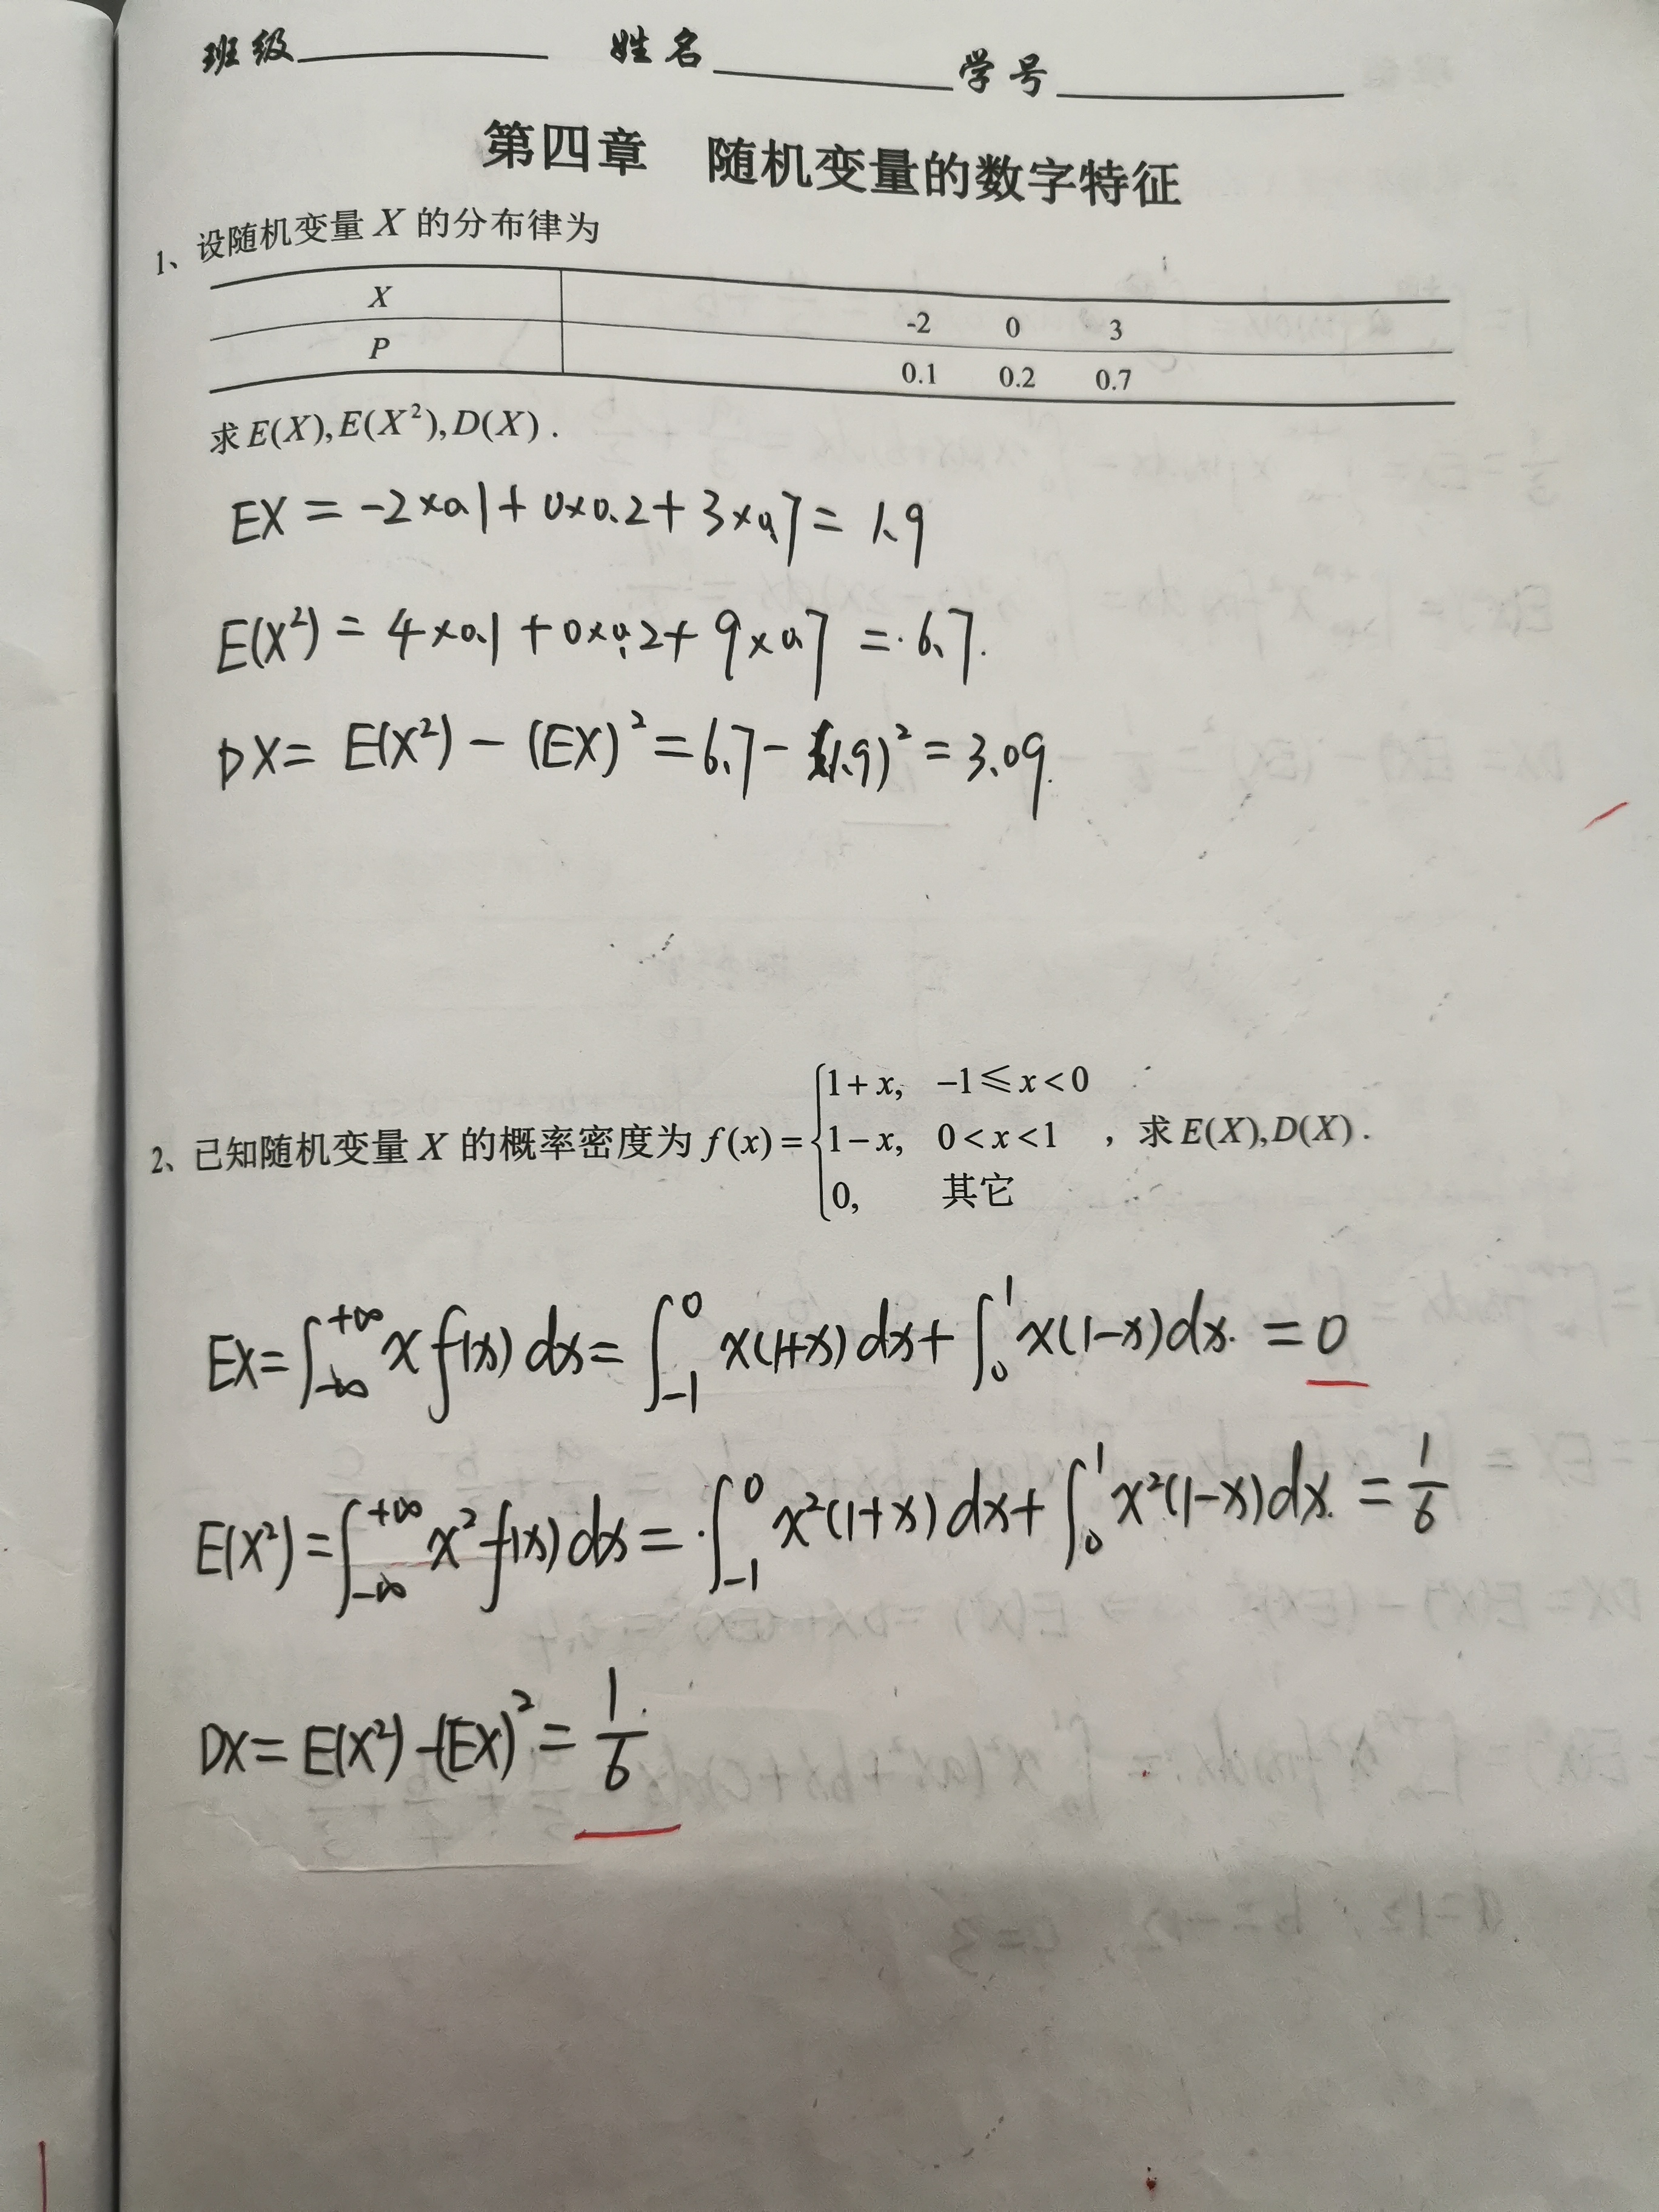 班级 姓名 学号
第四章 随机变量的数字特征
1、设随机变量 X 的分布律为
X -2 0 3
P 0.1 0.2 0.7
求 E(X), E(X²), D(X) .
EX = -2×0.1+0×0.2+3×0.7= 1.9
E(X²) = 4×0.1+0×0.2+9×0.7 = 6.7.
DX= E(X²) - (EX)² = 6.7 - (1.9)² = 3.09.
2、已知随机变量 X 的概率密度为 f(x) = { 1+x, -1≤x<0
1-x, 0<x<1 ，求 E(X), D(X) .
0, 其它
EX=∫_{-∞}^{+∞} x f(x) dx = ∫_{-1}^{0} x(1+x) dx + ∫_{0}^{1} x(1-x) dx. = 0
E(X²) = ∫_{-∞}^{+∞} x² f(x) dx = ∫_{-1}^{0} x²(1+x) dx + ∫_{0}^{1} x²(1-x) dx. = 1/6
DX= E(X²) -(EX)² = 1/6